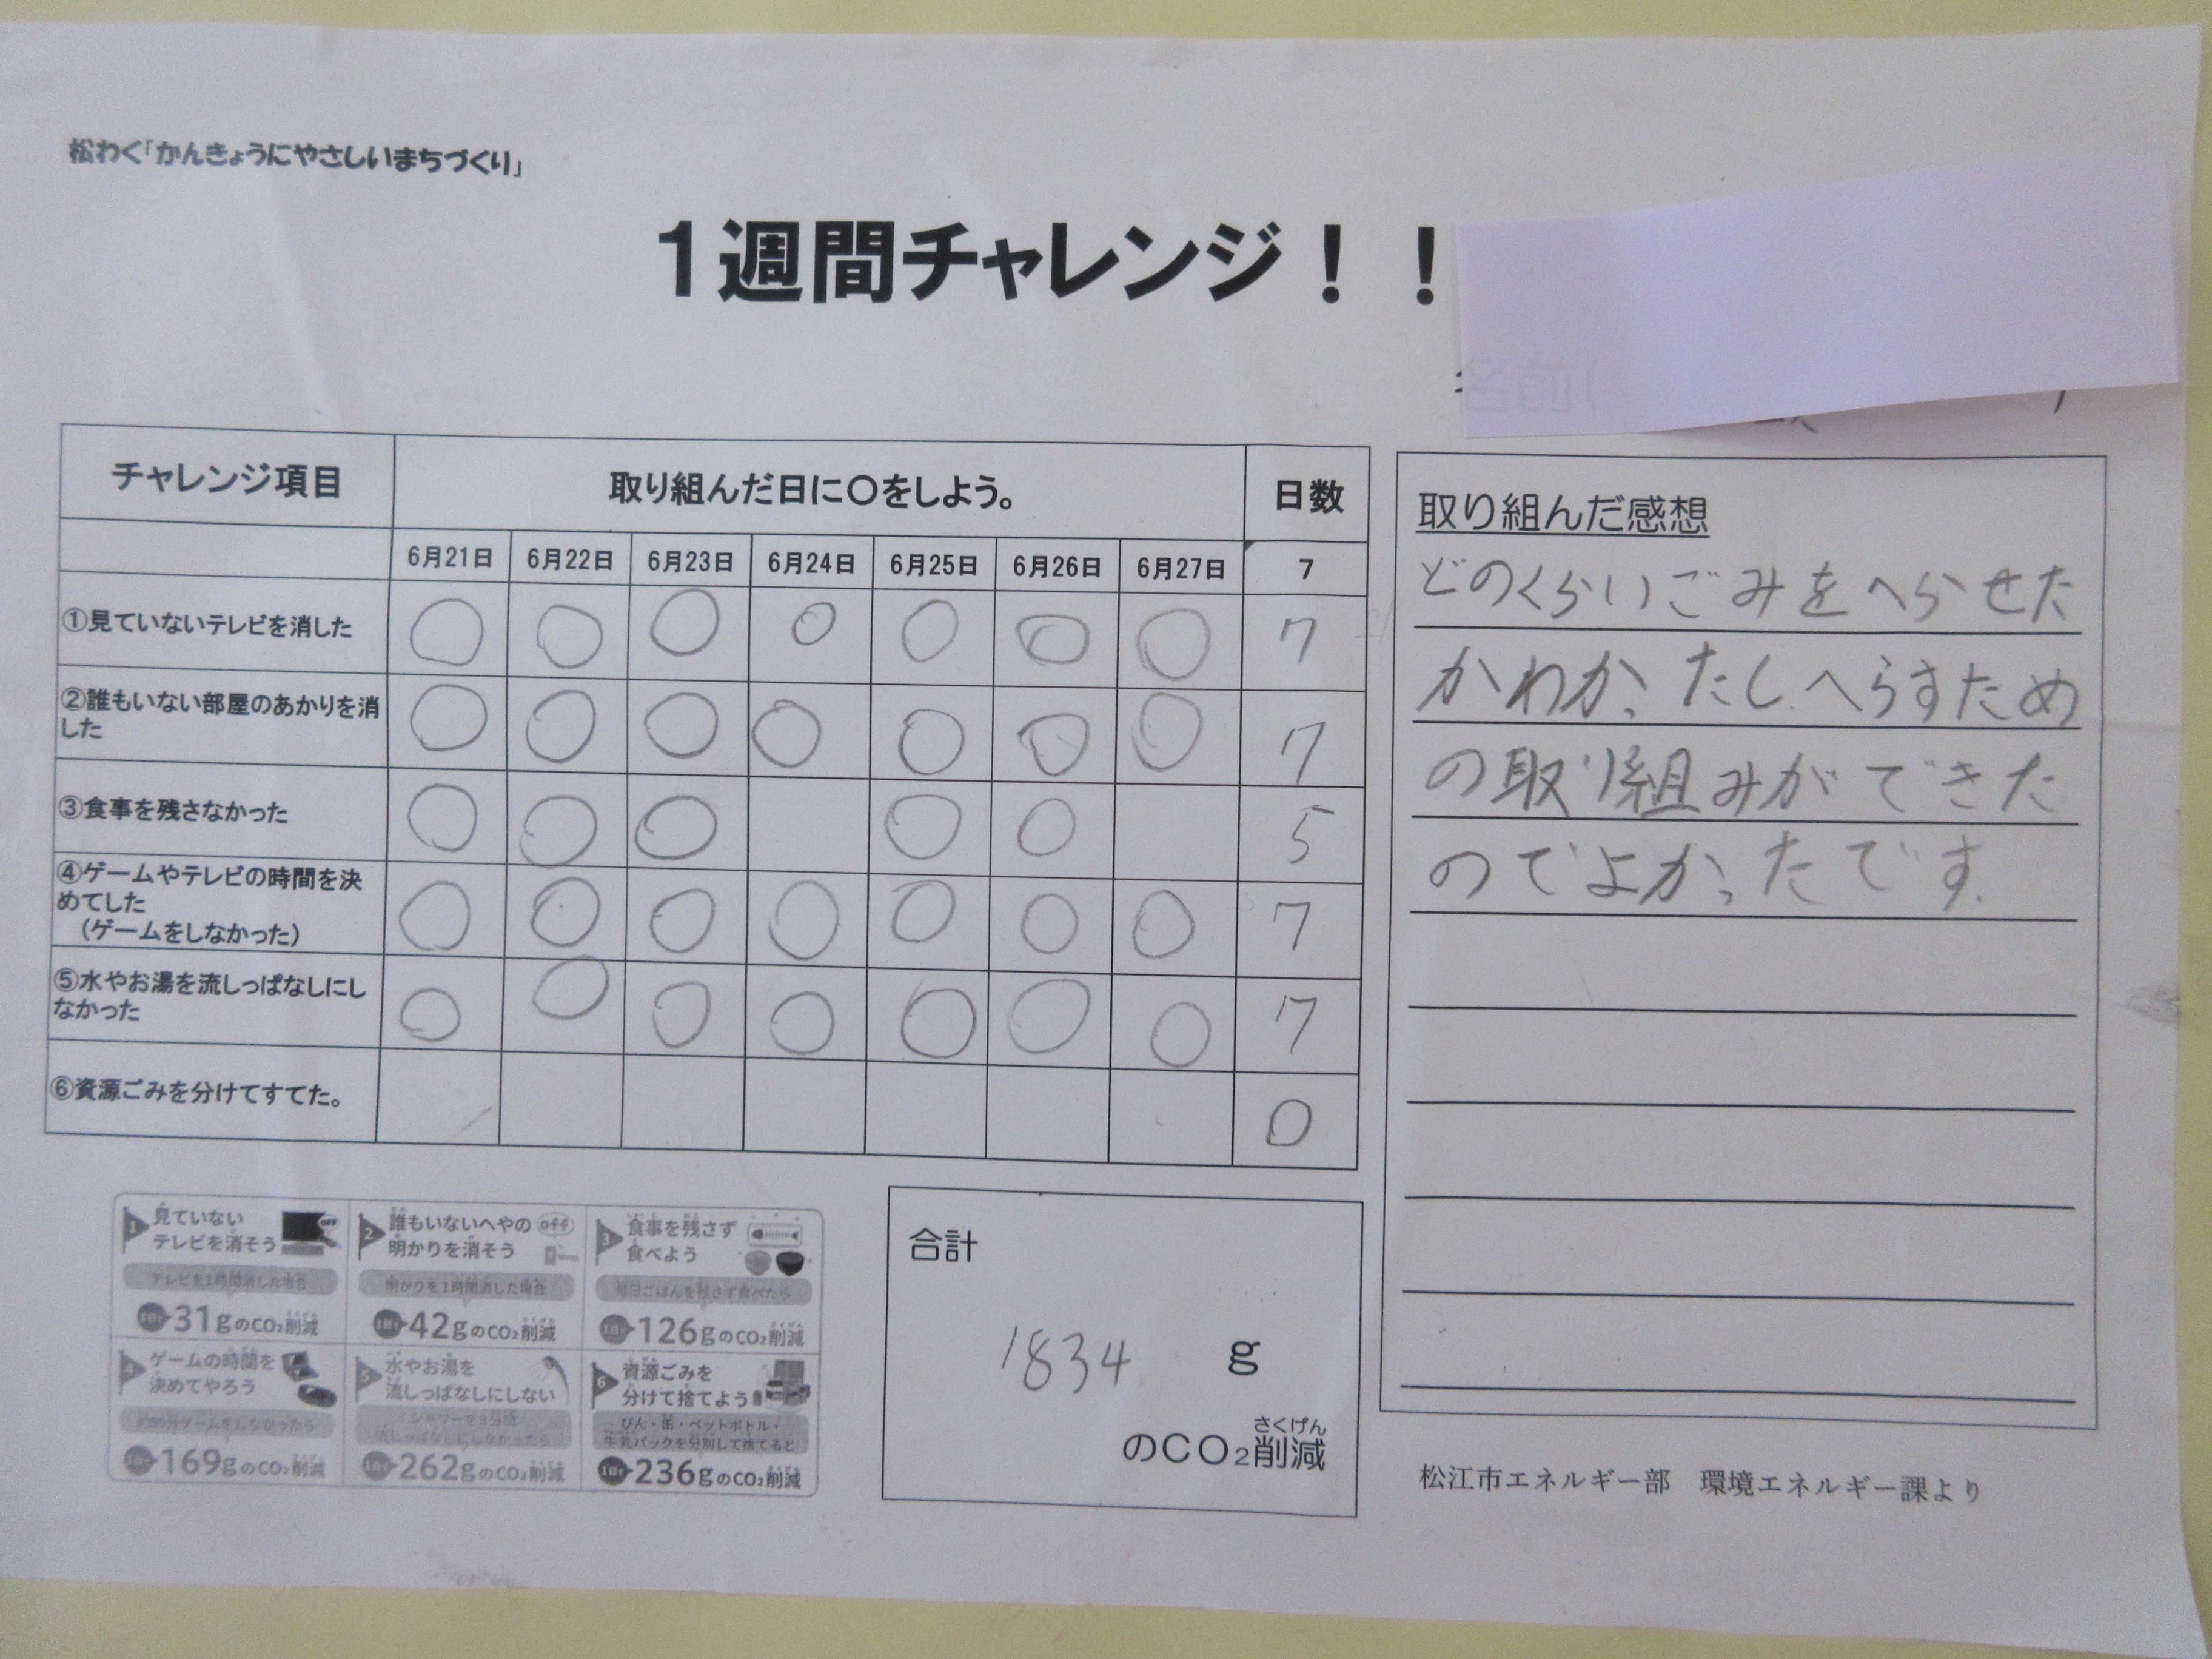 松わく「かんきょうにやさしいまちづくり」
1週間チャレンジ！！
チャレンジ項目 取り組んだ日に〇をしよう。 日数
6月21日 6月22日 6月23日 6月24日 6月25日 6月26日 6月27日 7
①見ていないテレビを消した 〇 〇 〇 〇 〇 〇 〇 7
②誰もいない部屋のあかりを消
した 〇 〇 〇 〇 〇 〇 〇 7
③食事を残さなかった 〇 〇 〇 〇 〇 5
④ゲームやテレビの時間を決
めてした
（ゲームをしなかった） 〇 〇 〇 〇 〇 〇 〇 7
⑤水やお湯を流しっぱなしにし
なかった 〇 〇 〇 〇 〇 〇 〇 7
⑥資源ごみを分けてすてた。 0
取り組んだ感想
どのくらいごみをへらせた
かわかったし、へらすため
の取り組みができた
のでよかったです。
1 見ていない
テレビを消そう
テレビを1時間消した場合
31gのCO₂削減
2 誰もいないへやの
明かりを消そう
off
明かりを1時間消した場合
42gのCO₂削減
3 食事を残さず
食べよう
毎日ごはんを残さず食べたら
126gのCO₂削減
4 ゲームの時間を
決めてやろう
ゲームをしなかったら
169gのCO₂削減
5 水やお湯を
流しっぱなしにしない
シャワーを3分間
流しっぱなしにしなかったら
262gのCO₂削減
6 資源ごみを
分けて捨てよう
びん・缶・ペットボトル・
牛乳パックを分別して捨てると
236gのCO₂削減
合計
1834 g
さくげん
のCO₂削減
松江市エネルギー部 環境エネルギー課より